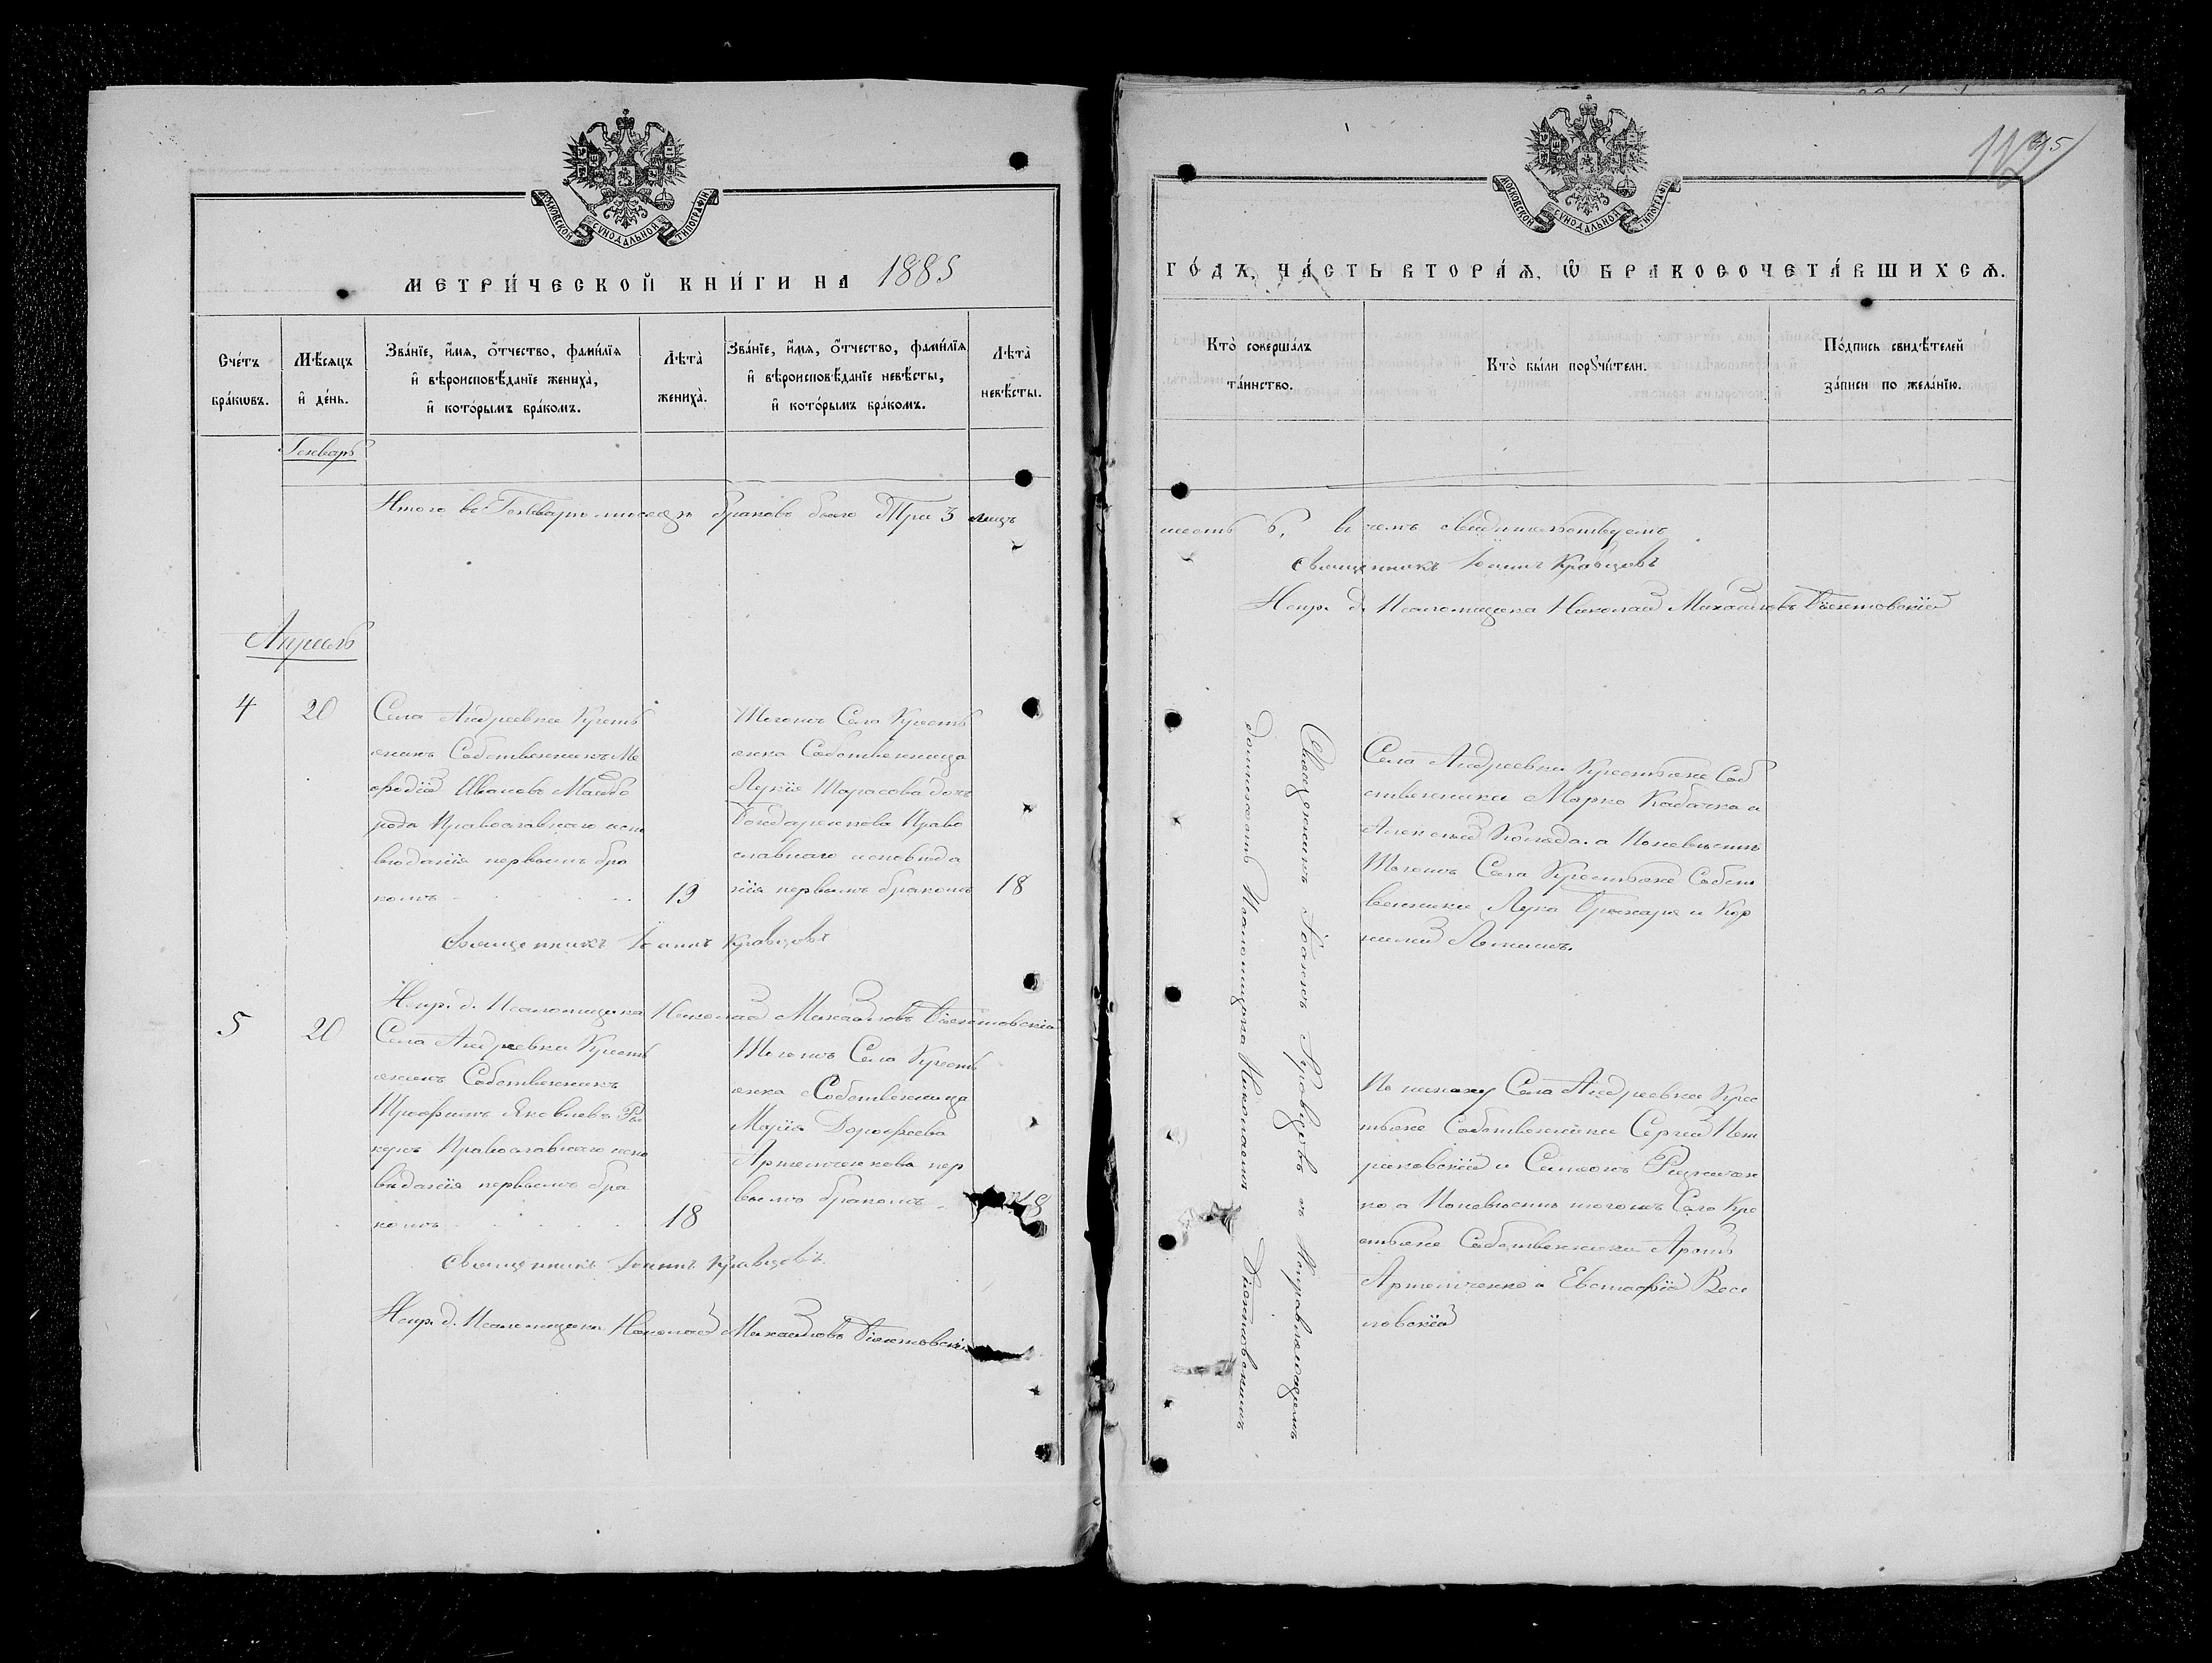 МОСКОВСКОЙ СУНОДАЛЬНОЙ ТИПОГРАФІИ
МЕТРИ́ЧЕСКОЙ КНИ́ГИ НА 1885
Сче́тъ бра́кѡвъ.
Мѣ́сѧцъ и҆ де́нь.
Зва́нїе, и҆́мѧ, ѻ҆́тчество, фами́лїѧ
и҆ вѣроисповѣ́данїе жениха̀,
и҆ кото́рымъ бра́комъ.
Лѣта̀ жениха̀.
Зва́нїе, и҆́мѧ, ѻ҆́тчество, фами́лїѧ
и҆ вѣроисповѣ́данїе невѣ́сты,
и҆ кото́рымъ бра́комъ.
Лѣта̀ невѣ́сты.
Генварь
Итого въ Генварѣ месяцѣ браковъ было Три 3 лицъ
Апрель
4
20
Села Андреевки Кресть
янинъ Собственникъ Ме
фодій Ивановъ Майбо
рода Православнаго испо
веданія первымъ бра
комъ
19
Тогожъ Села Кресть
янка Собственница
Лукія Тарасова дочь
Бондаренкова Право
славнаго исповѣда
нія первымъ бракомъ
18
Священникъ Іоаннъ Кравцовъ
Испр. д. Псаломщика Николай Михайловъ
5
20
Села Андреевки Кресть
янинъ Собственникъ
Трофимъ Яковлевъ
Православнаго испо
виданія первымъ бра
комъ
18
Тогожъ Села Кресть
янка Собственница
Марія Дорофеева
Артемченкова пер
вымъ бракомъ
18
Священникъ Іоаннъ Кравцовъ
Испр. д. Псаломщика Николай Михайловъ
МОСКОВСКОЙ СУНОДАЛЬНОЙ ТИПОГРАФІИ
ГО́ДЪ, ЧА́СТЬ ВТОРА́Ѧ, Ѽ БРАКОСОЧЕТА́ВШИХСѦ.
Кто̀ соверша́лъ
та́инство.
Кто̀ бы́ли порꙋчи́тели.
По́дпись свидѣ́телей
за́писи по жела́нїю.
шесть 6, въ чемъ свидительствуемъ
Священникъ Іоаннъ Кравцовъ
Испр. д. Псаломщика Николай Михайловъ
Священникомъ Іоанномъ Кравцовъ съ Исправляющимъ
должность Псаломщика Николаемъ
Села Андреевки Крестьяне Соб
ственники Марко Кабачка и
Алексей Коляда. а Поневѣстѣ
Тогожъ Села Крестьяне Собст
венники Лука и Кор
нилий
По жениху Села Андреевки Крес
тьяне Собственники Сергей Пет
раковскій и Симеонъ
ко а Поневѣстѣ тогожъ Села Кре
стьяне Собственники
Артемченко и Евстафій Весе
ловскій